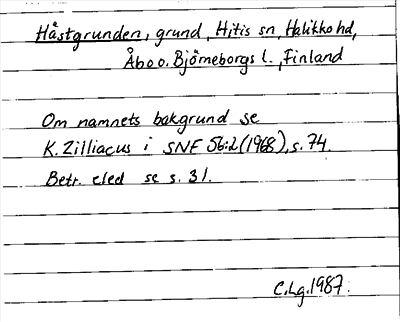 Håstgrunden, grund, Hitis sn, Halikko hd,
Åbo o. Björneborgs l., Finland
Om namnets bakgrund se
K. Zilliacus i SNF 56:2 (1968), s. 74.
Betr. eled se s. 31.
C.Lg. 1987.